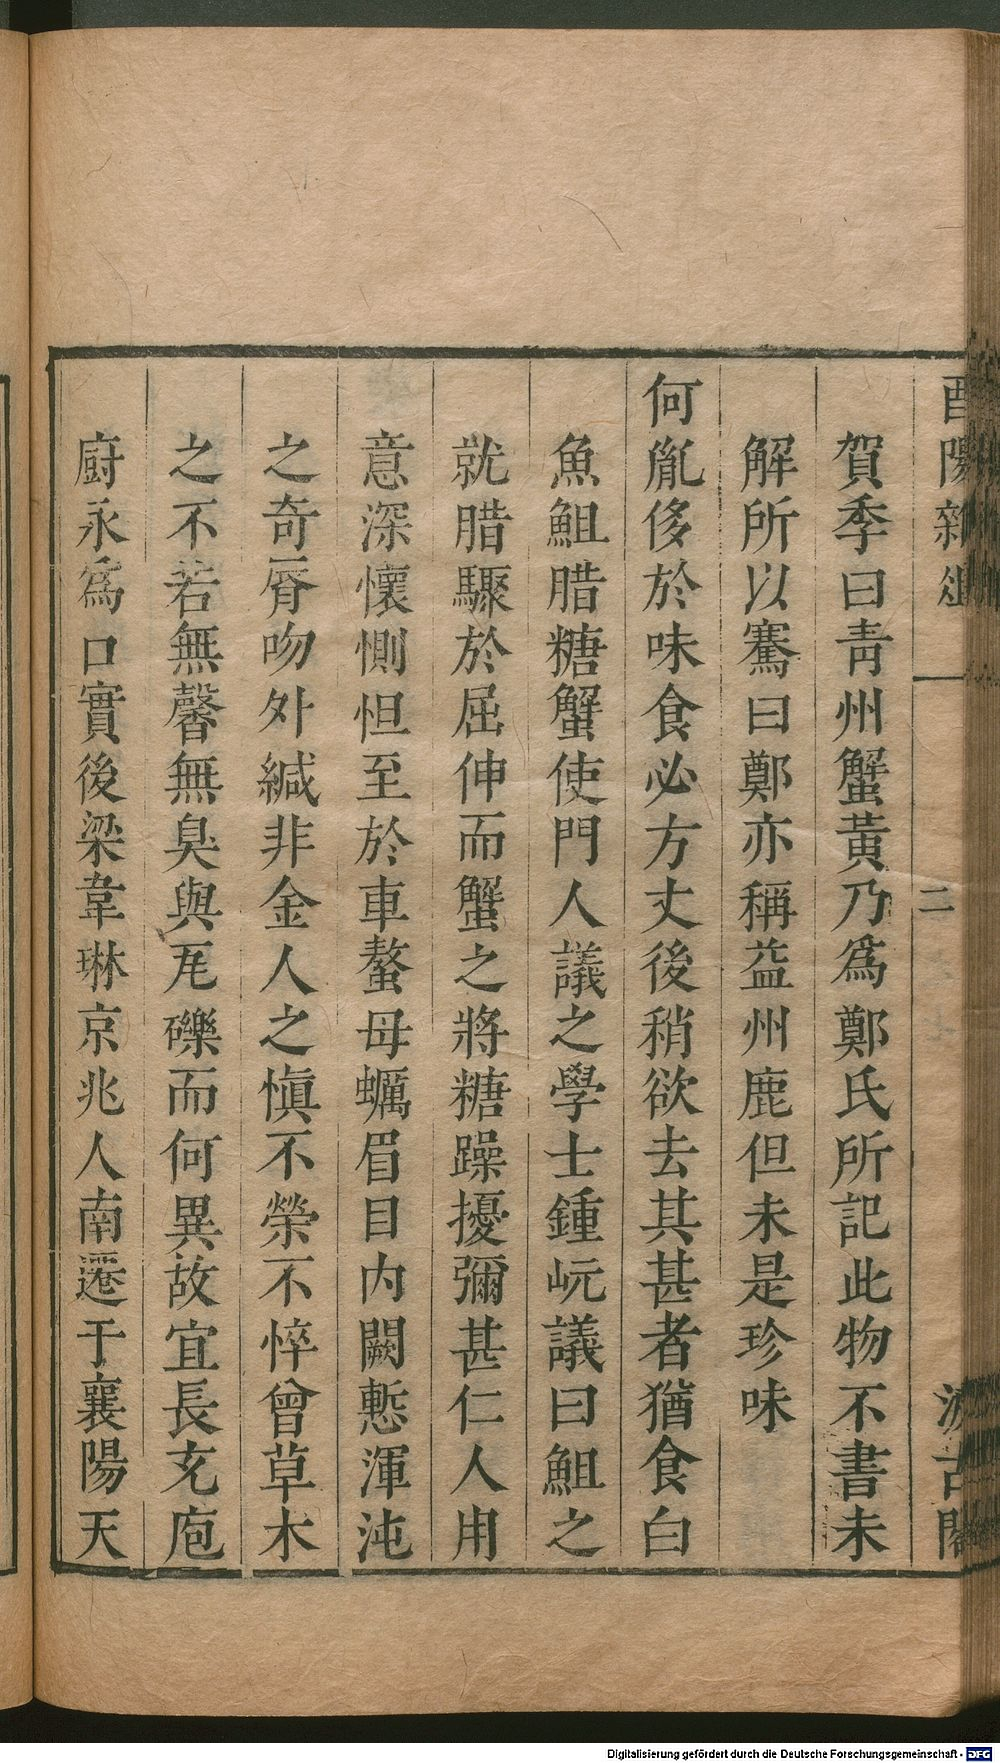 酉陽雜俎
二
汲古閣
賀季曰青州蟹黃乃爲鄭氏所記此物不書未
解所以騫曰鄭亦稱益州鹿但未是珍味
何胤侈於味食必方丈後稍欲去其甚者猶食白
魚䱉腊糖蟹使門人議之學士鍾岏議曰䱉之
就腊驟於屈伸而蟹之將糖躁擾彌甚仁人用
意深懷惻怛至於車螯母蠣眉目内闕慙渾沌
之奇脣吻外緘非金人之愼不榮不悴曾草木
之不若無馨無臭與瓦礫而何異故宜長充庖
廚永爲口實後梁韋琳京兆人南遷于襄陽天
Digitalisierung gefördert durch die Deutsche Forschungsgemeinschaft - DFG